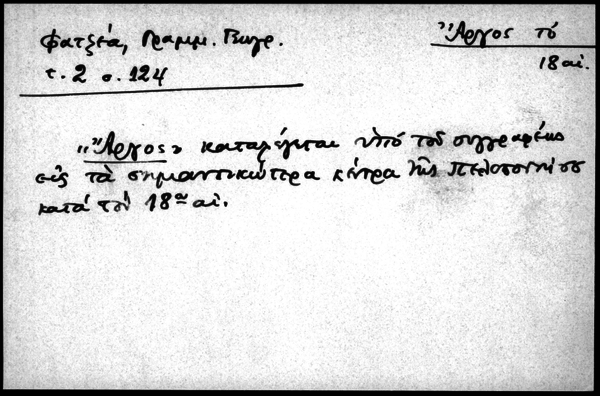 Φατζέα, Γραμμ. Γεωγρ.
τ. 2 σ. 124
Ἄργος τό
18 αἰ.
«Ἄργος» καταλέγεται ὑπό τοῦ συγγραφέως
εἰς τά σημαντικώτερα κέντρα τῆς Πελοποννήσου
κατά τόν 18ον αἰ.